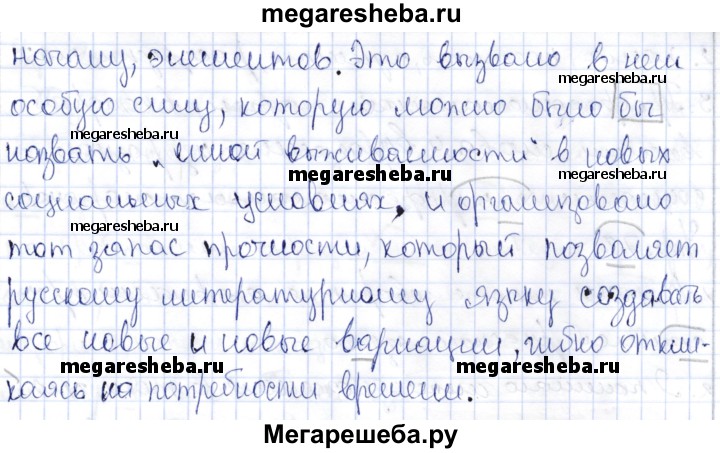 megaresheba.ru
началу, элементов. Это вызвало в нем
megaresheba.ru
особую силу, которую можно было бы
megaresheba.ru
назвать "силой выживаемости" в новых
megaresheba.ru
megaresheba.ru
социальных условиях, и организовало
megaresheba.ru
megaresheba.ru
тот запас прочности, который позваляет
русскому литературному языку создавать
megaresheba.ru
все новые и новые вариации, гибко откли-
megaresheba.ru
megaresheba.ru
каясь на потребности времени.
Мегарешеба.ру